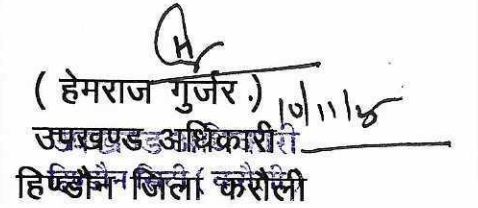 ( हेमराज गुर्जर.)
उपखण्ड अधिकारी
हिण्डौन जिला करौली